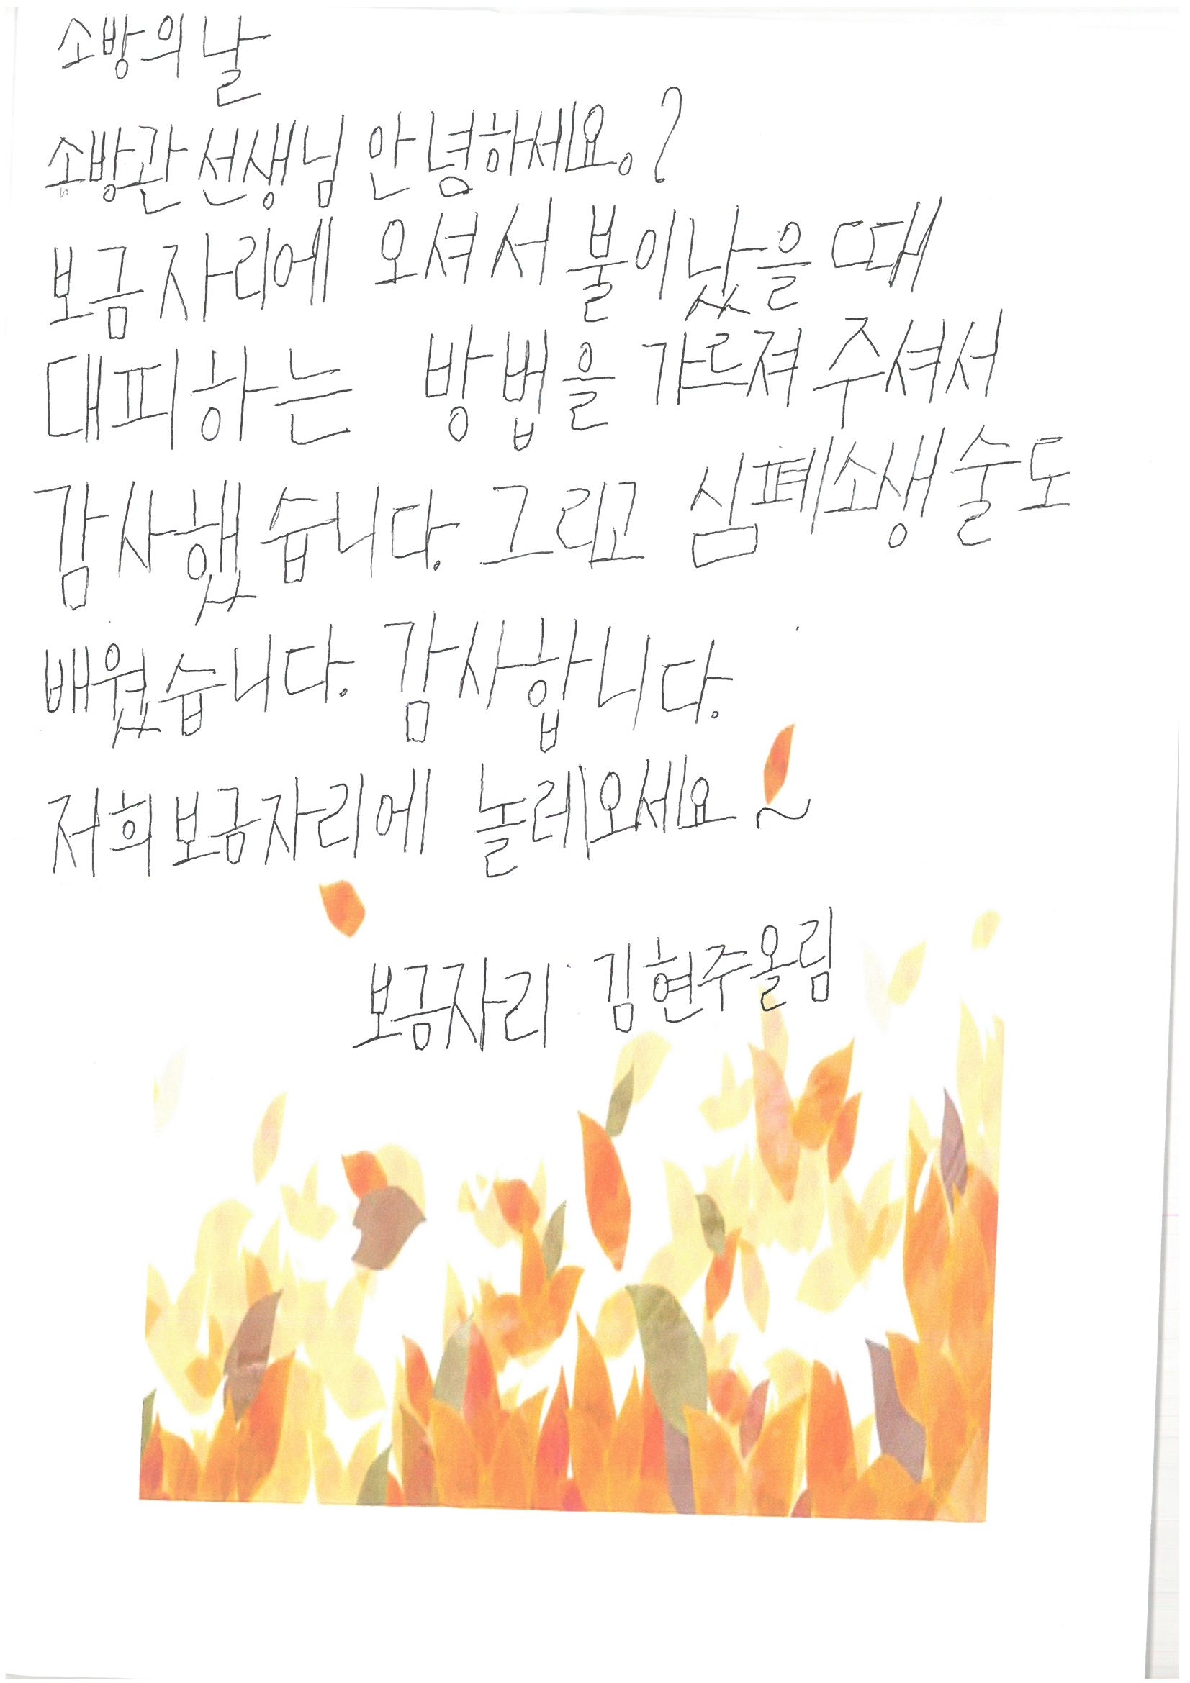 소방의날
소방관선생님 안녕하세요。?
보금자리에 오셔서 불이났을때
대피하는 방법을 가르져 주셔서
감사했습니다. 그리고 심폐소생술도
배웠습니다. 감사합니다.
저희보금자리에 놀레오세요~
보금자리 김현주올림